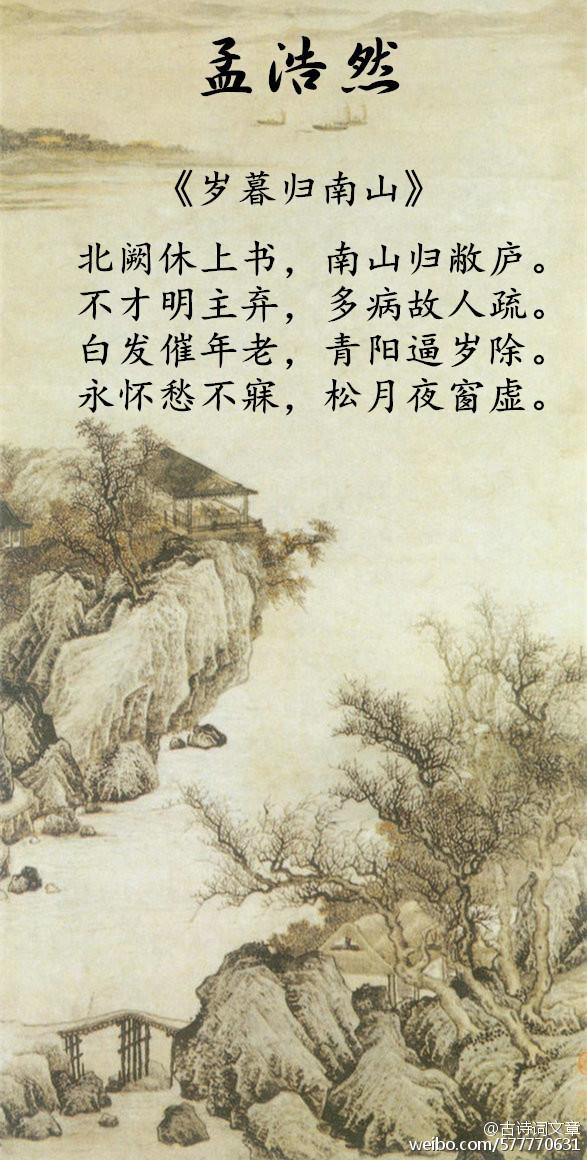 孟浩然
《岁暮归南山》
北阙休上书，南山归敝庐。
不才明主弃，多病故人疏。
白发催年老，青阳逼岁除。
永怀愁不寐，松月夜窗虚。
@古诗词文章
weibo.com/577770631